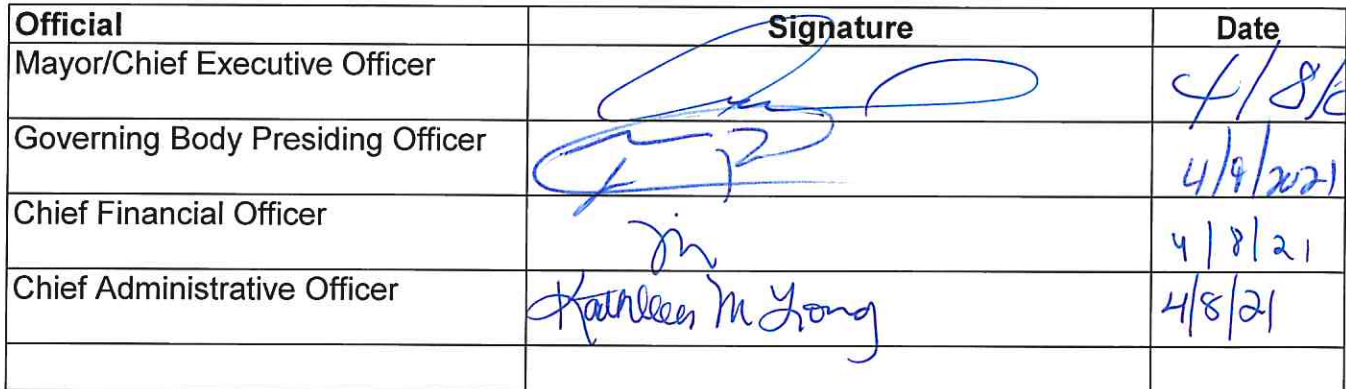 Official Signature Date
Mayor/Chief Executive Officer 4/8/
Governing Body Presiding Officer 4/9/2021
Chief Financial Officer 4/8/21
Chief Administrative Officer Kathleen M Long 4/8/21